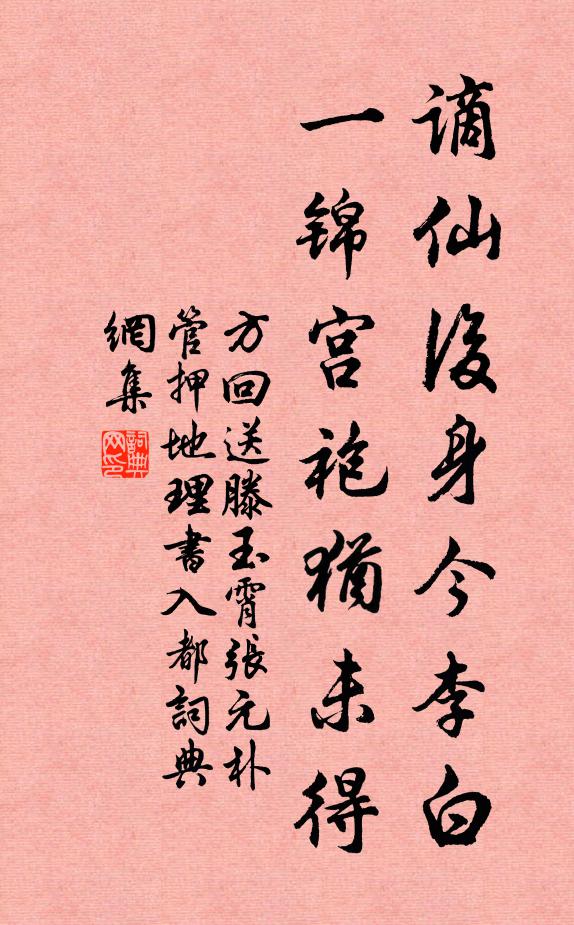 谪仙後身今李白
一锦宫袍猶未得
方回送滕玉霄張元朴
管押地理書入都詞典
網集
詞典网印